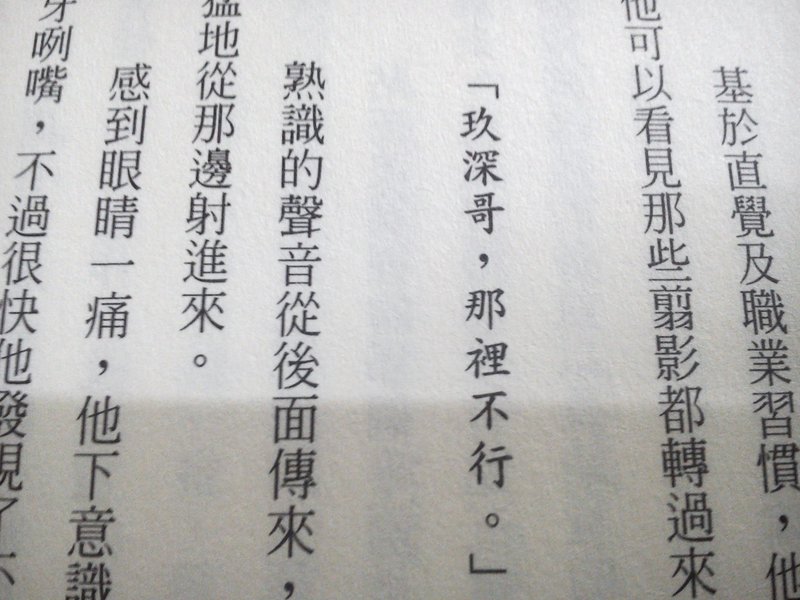 基於直覺及職業習慣，他
他可以看見那些翦影都轉過來
「玖深哥，那裡不行。」
熟識的聲音從後面傳來，
猛地從那邊射進來。
感到眼睛一痛，他下意識
牙咧嘴，不過很快他發現了不